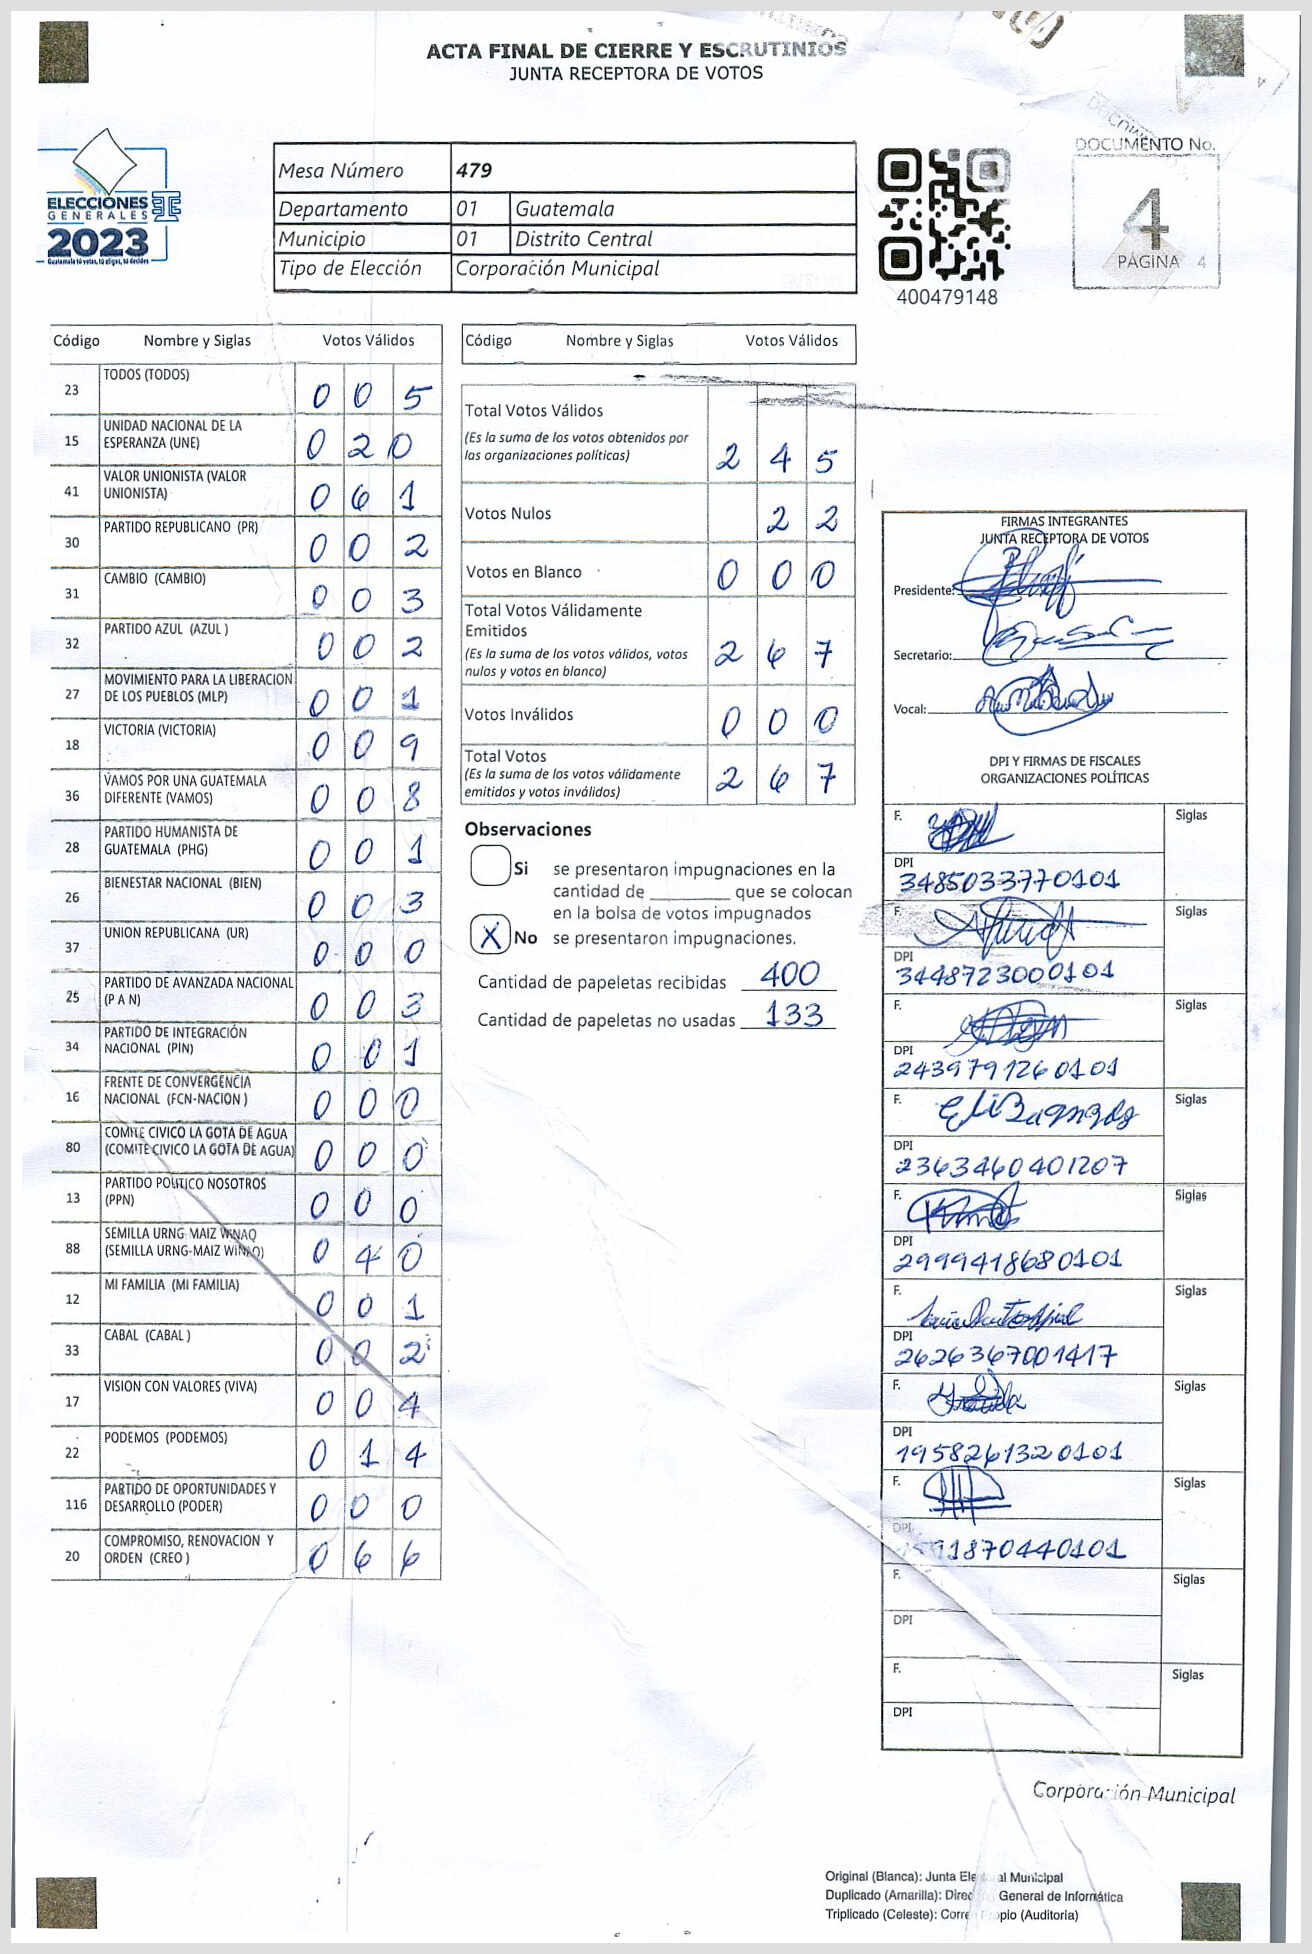 ACTA FINAL DE CIERRE Y ESCRUTINIOS
JUNTA RECEPTORA DE VOTOS
ELECCIONES
GENERALES
2023
Guatemala tú votas, tú eliges, tú decides
Mesa Número 479
Departamento 01 Guatemala
Municipio 01 Distrito Central
Tipo de Elección Corporación Municipal
400479148
DOCUMENTO No.
4
PÁGINA 4
Código Nombre y Siglas Votos Válidos
23 TODOS (TODOS) 0 0 5
15 UNIDAD NACIONAL DE LA
ESPERANZA (UNE) 0 2 0
41 VALOR UNIONISTA (VALOR
UNIONISTA) 0 6 1
30 PARTIDO REPUBLICANO (PR) 0 0 2
31 CAMBIO (CAMBIO) 0 0 3
32 PARTIDO AZUL (AZUL ) 0 0 2
27 MOVIMIENTO PARA LA LIBERACION
DE LOS PUEBLOS (MLP) 0 0 1
18 VICTORIA (VICTORIA) 0 0 9
36 VAMOS POR UNA GUATEMALA
DIFERENTE (VAMOS) 0 0 8
28 PARTIDO HUMANISTA DE
GUATEMALA (PHG) 0 0 1
26 BIENESTAR NACIONAL (BIEN) 0 0 3
37 UNION REPUBLICANA (UR) 0 0 0
25 PARTIDO DE AVANZADA NACIONAL
(P A N) 0 0 3
34 PARTIDO DE INTEGRACIÓN
NACIONAL (PIN) 0 0 1
16 FRENTE DE CONVERGENCIA
NACIONAL (FCN-NACION ) 0 0 0
80 COMITE CIVICO LA GOTA DE AGUA
(COMITE CIVICO LA GOTA DE AGUA) 0 0 0
13 PARTIDO POLITICO NOSOTROS
(PPN) 0 0 0
88 SEMILLA URNG MAIZ WINAQ
(SEMILLA URNG-MAIZ WINAQ) 0 4 0
12 MI FAMILIA (MI FAMILIA) 0 0 1
33 CABAL (CABAL ) 0 0 2
17 VISION CON VALORES (VIVA) 0 0 4
22 PODEMOS (PODEMOS) 0 1 4
116 PARTIDO DE OPORTUNIDADES Y
DESARROLLO (PODER) 0 0 0
20 COMPROMISO, RENOVACION Y
ORDEN (CREO ) 0 6 6
Código Nombre y Siglas Votos Válidos
Total Votos Válidos
(Es la suma de los votos obtenidos por
las organizaciones políticas) 2 4 5
Votos Nulos 2 2
Votos en Blanco 0 0 0
Total Votos Válidamente
Emitidos
(Es la suma de los votos válidos, votos
nulos y votos en blanco) 2 6 7
Votos Inválidos 0 0 0
Total Votos
(Es la suma de los votos válidamente
emitidos y votos inválidos) 2 6 7
Observaciones
Si se presentaron impugnaciones en la
cantidad de ________ que se colocan
en la bolsa de votos impugnados
X No se presentaron impugnaciones.
Cantidad de papeletas recibidas 400
Cantidad de papeletas no usadas 133
FIRMAS INTEGRANTES
JUNTA RECEPTORA DE VOTOS
Presidente:
Secretario:
Vocal:
DPI Y FIRMAS DE FISCALES
ORGANIZACIONES POLÍTICAS
F. Siglas
DPI
3485033770101
F. Siglas
DPI
3448723000101
F. Siglas
DPI
2439791260101
F. Siglas
DPI
2363460401207
F. Siglas
DPI
2999418680101
F. Siglas
DPI
2626367001417
F. Siglas
DPI
1958261320101
F. Siglas
DPI
F. Siglas
DPI
F. Siglas
DPI
Corporación Municipal
Original (Blanca): Junta Electoral Municipal
Duplicado (Amarilla): Dirección General de Informática
Triplicado (Celeste): Correo Propio (Auditoria)